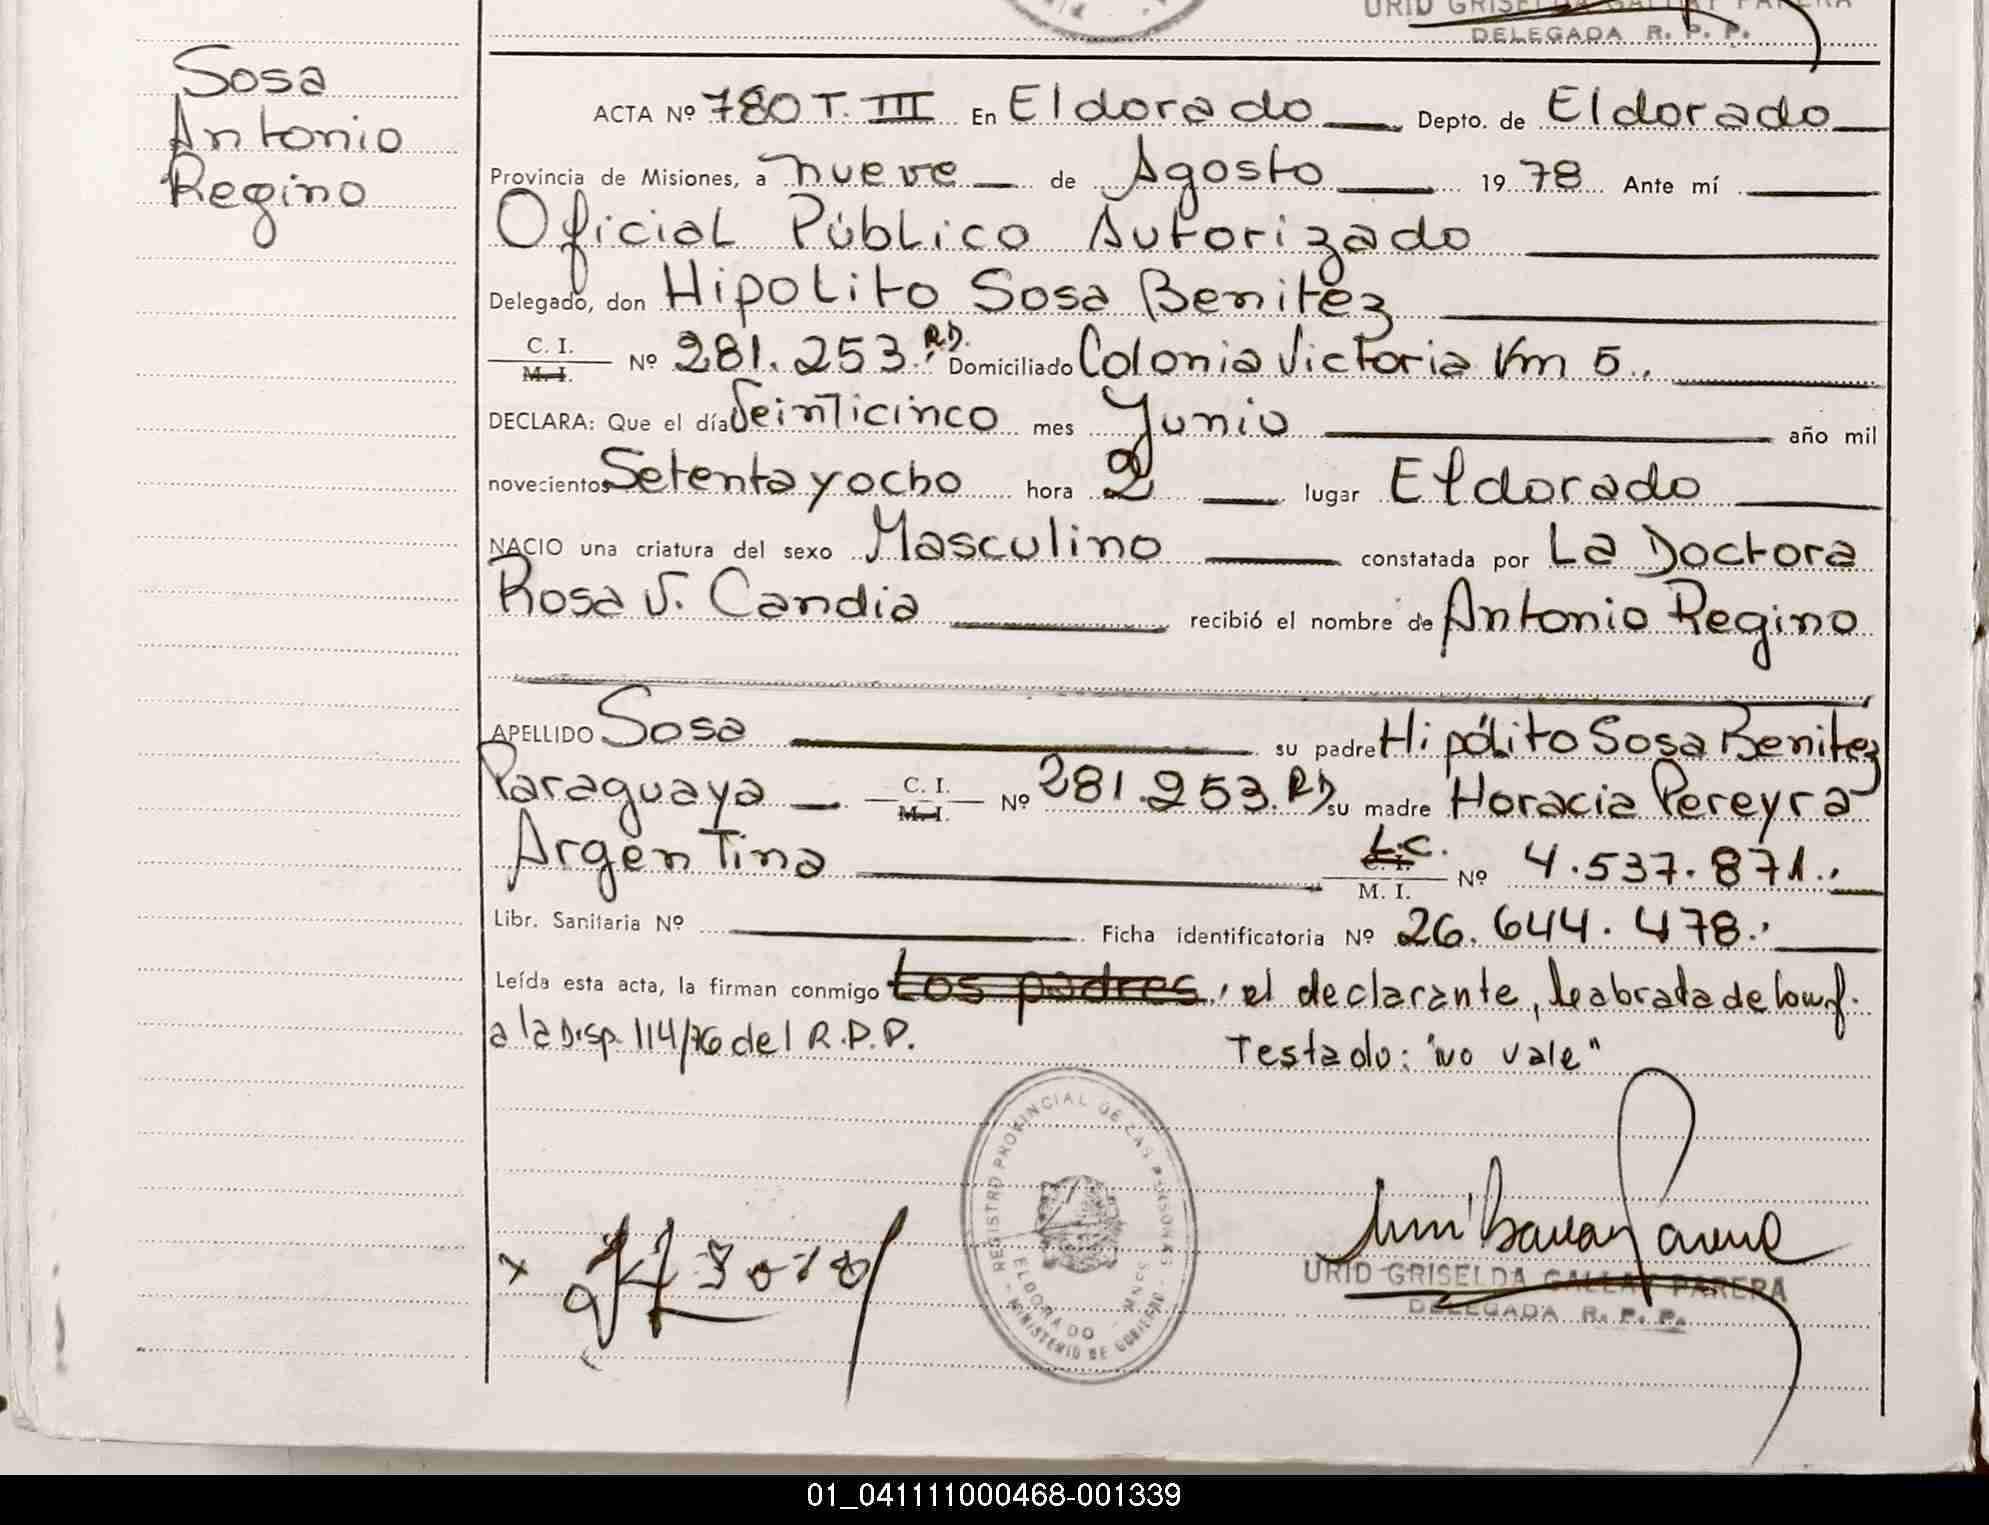 URID GRISELDA GALLAY PARERA
DELEGADA R. P. P.
Sosa
Antonio
Regino
ACTA Nº 780 T. III En Eldorado Depto. de Eldorado
Provincia de Misiones, a nueve de Agosto 1978 Ante mí
Oficial Público Autorizado
Delegado, don Hipolito Sosa Benitez
C. I.
M. I. Nº 281.253. RD. Domiciliado Colonia Victoria Km 5.
DECLARA: Que el día Veinticinco mes Junio año mil
novecientos Setenta y ocho hora 2 lugar Eldorado
NACIO una criatura del sexo Masculino constatada por La Doctora
Rosa V. Candia recibió el nombre de Antonio Regino
APELLIDO Sosa su padre Hipólito Sosa Benitez
Paraguaya C. I. M. I. Nº 281.253. RD su madre Horacia Pereyra
Argentina L.C. C. I. M. I. Nº 4.537.871.
Libr. Sanitaria Nº Ficha identificatoria Nº 26.644.478.
Leída esta acta, la firman conmigo Los padres, el declarante, de
a la Disp. 114/76 del R.P.P. Testado: "no vale"
REGISTRO PROVINCIAL DE LAS PERSONAS
ELDORADO - MNES
MINISTERIO DE GOBIERNO
URID GRISELDA GALLAY PARERA
DELEGADA R. P. P.
01_041111000468-001339